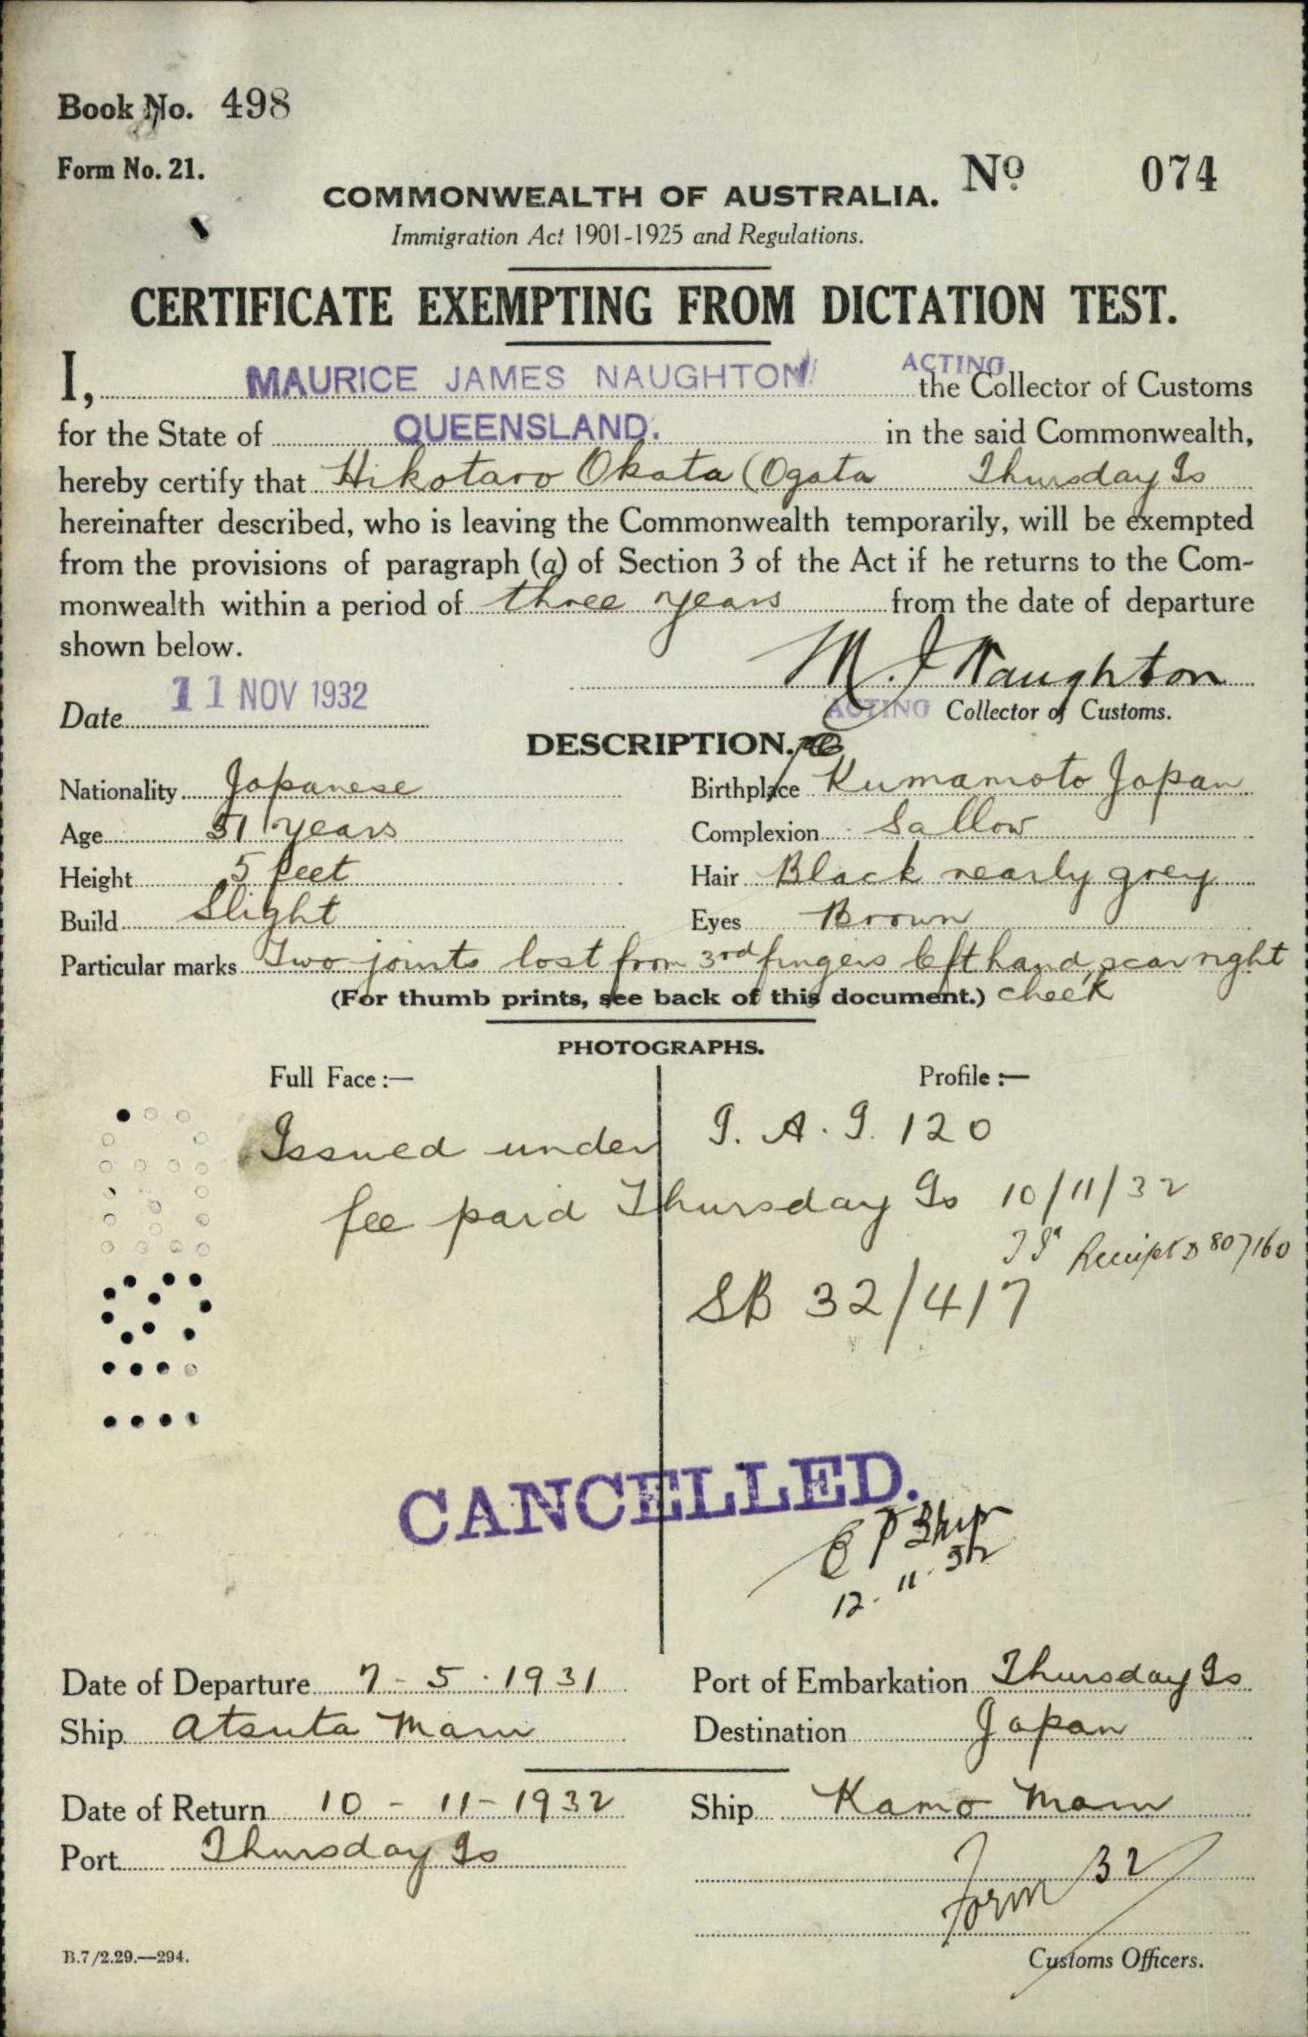 Book No. 498
Form No. 21.
Nº 074
COMMONWEALTH OF AUSTRALIA.
Immigration Act 1901-1925 and Regulations.
CERTIFICATE EXEMPTING FROM DICTATION TEST.
I, MAURICE JAMES NAUGHTON ACTING the Collector of Customs
for the State of QUEENSLAND. in the said Commonwealth,
hereby certify that Hikotaro Okata (Ogata Thursday Is
hereinafter described, who is leaving the Commonwealth temporarily, will be exempted
from the provisions of paragraph (a) of Section 3 of the Act if he returns to the Com-
monwealth within a period of three years from the date of departure
shown below.
M. J Naughton
Date 11 NOV 1932
ACTING Collector of Customs.
DESCRIPTION.
Nationality Japanese Birthplace Kumamoto Japan
Age 51 years Complexion Sallow
Height 5 feet Hair Black nearly grey
Build Slight Eyes Brown
Particular marks Two joints lost from 3rd fingers left hand, scar right
(For thumb prints, see back of this document.) cheek
PHOTOGRAPHS.
Full Face :— Profile :—
Issued under I. A. I. 120
fee paid Thursday Is 10/11/32
Receipt D 807160
SB 32/417
CANCELLED.
12. 11. 32
Date of Departure 7 - 5 . 1931 Port of Embarkation Thursday Is
Ship Atsuta Maru Destination Japan
Date of Return 10 - 11 - 1932 Ship Kamo Maru
Port Thursday Is
Form 32
B.7/2.29.—294. Customs Officers.